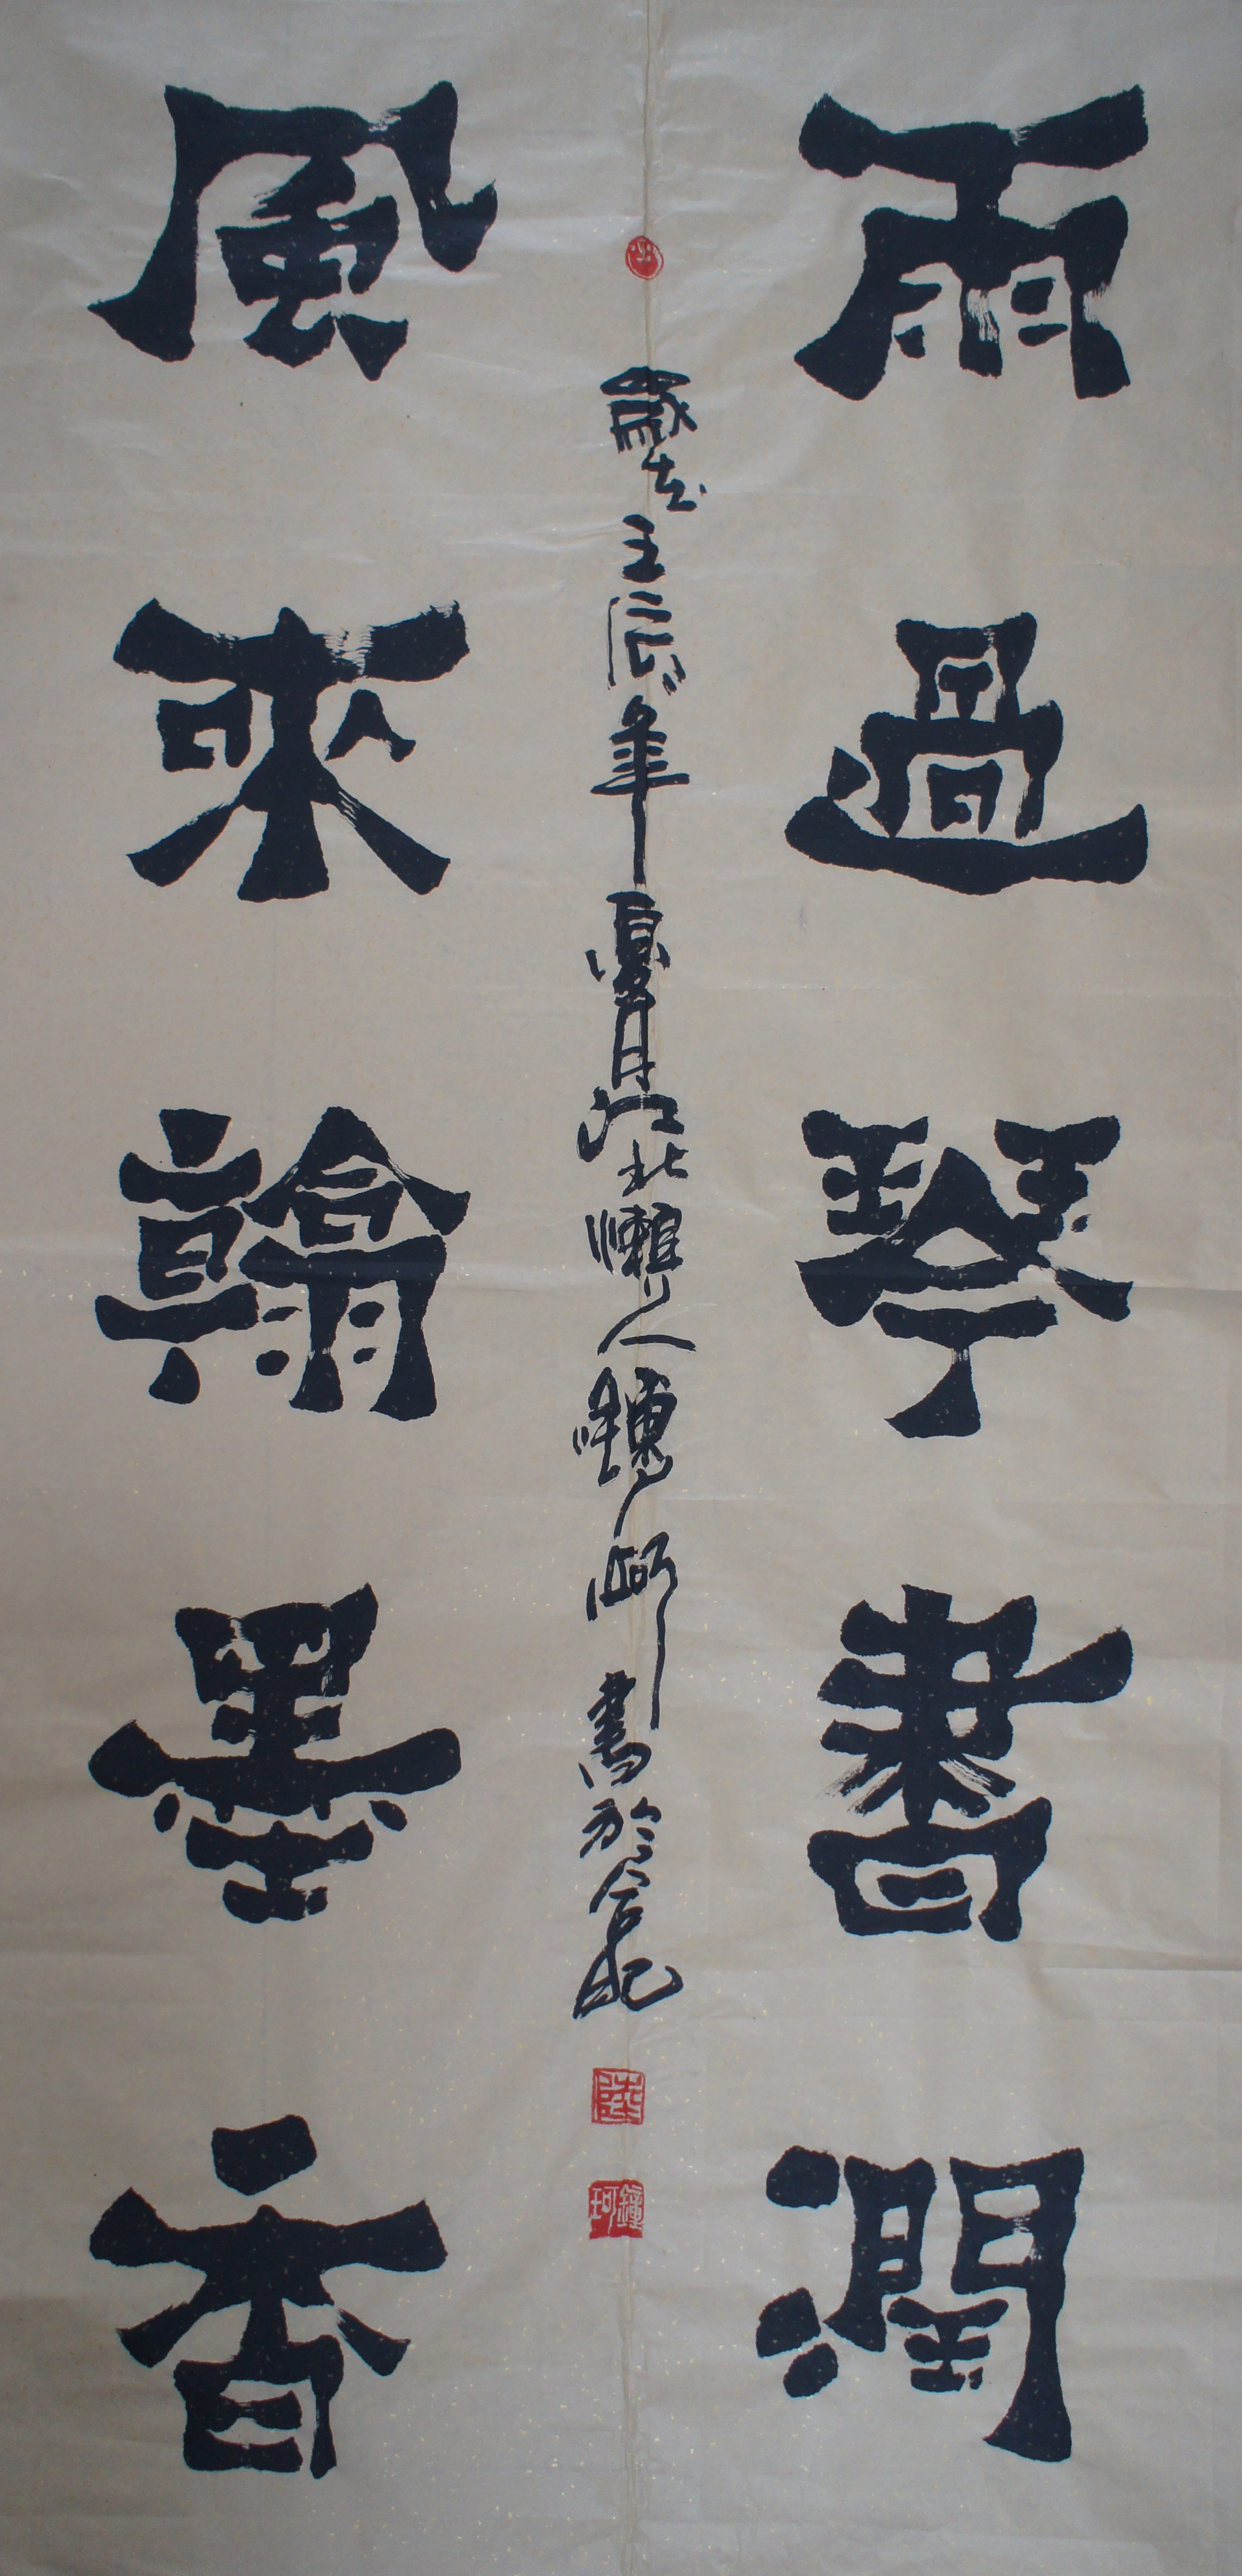 雨過琴書潤
風來翰墨香
歲在壬辰年夏月江北懶人鍾珂書於合肥
陸
鐘珂